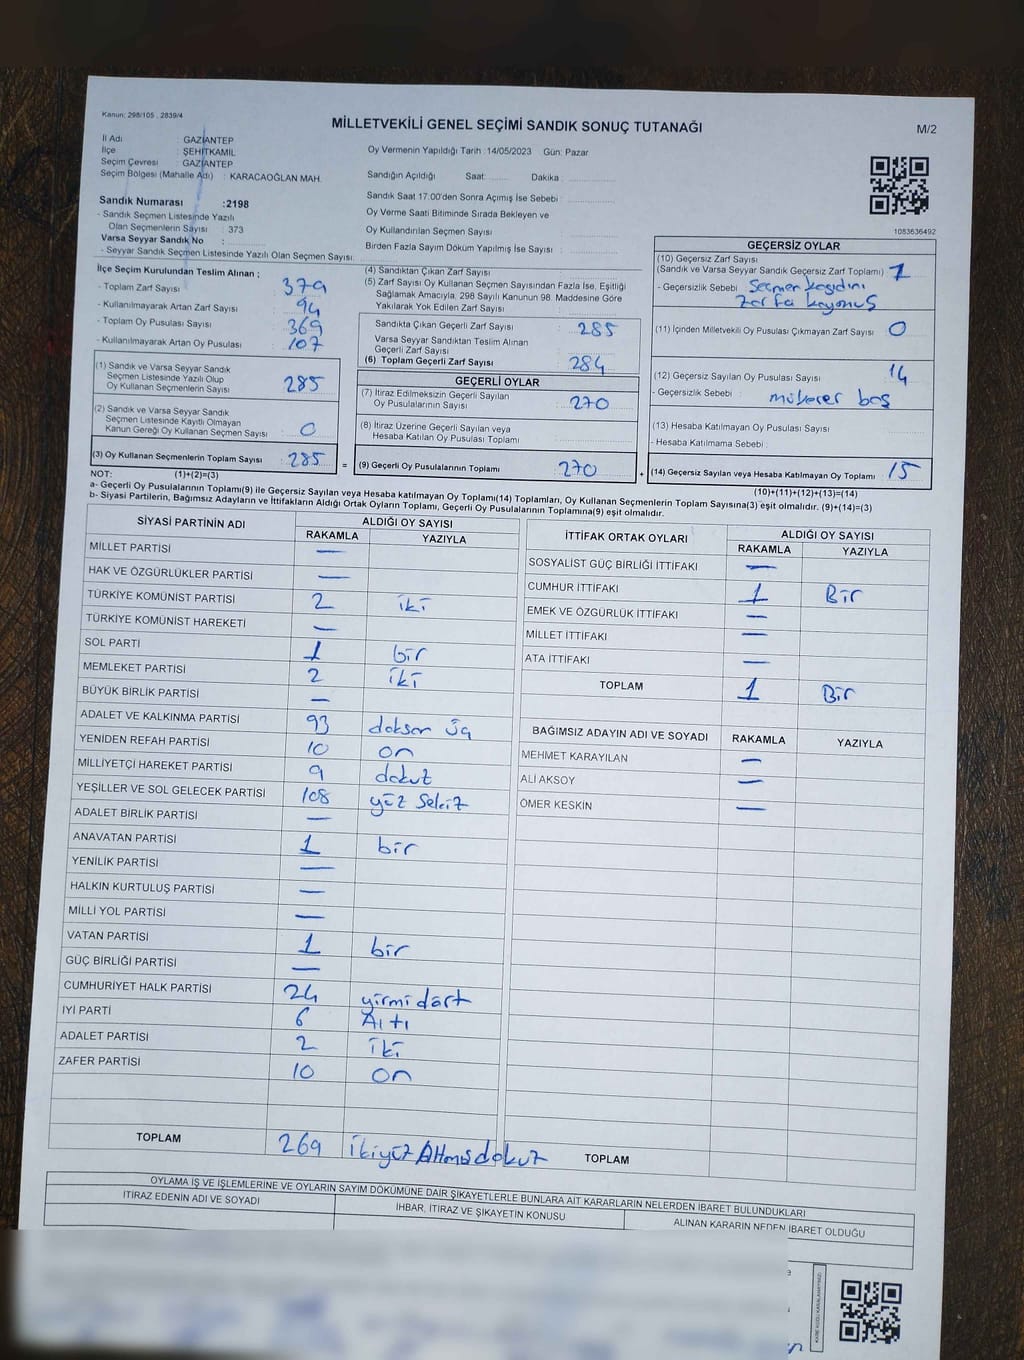 Kanun: 298/105 . 2839/4
MİLLETVEKİLİ GENEL SEÇİMİ SANDIK SONUÇ TUTANAĞI
M/2
İl Adı : GAZİANTEP
İlçe : ŞEHİTKAMİL
Seçim Çevresi : GAZİANTEP
Seçim Bölgesi (Mahalle Adı) : KARACAOĞLAN MAH.
Sandık Numarası :2198
- Sandık Seçmen Listesinde Yazılı
Olan Seçmenlerin Sayısı : 373
Varsa Seyyar Sandık No :
- Seyyar Sandık Seçmen Listesinde Yazılı Olan Seçmen Sayısı:
Oy Vermenin Yapıldığı Tarih :14/05/2023 Gün: Pazar
Sandığın Açıldığı Saat: Dakika :
Sandık Saat 17:00'den Sonra Açımış İse Sebebi :
Oy Verme Saati Bitiminde Sırada Bekleyen ve
Oy Kullandırılan Seçmen Sayısı :
Birden Fazla Sayım Döküm Yapılmış İse Sayısı :
1083636492
İlçe Seçim Kurulundan Teslim Alınan ;
- Toplam Zarf Sayısı : 379
- Kullanılmayarak Artan Zarf Sayısı : 94
- Toplam Oy Pusulası Sayısı : 369
- Kullanılmayarak Artan Oy Pusulası : 107
(1) Sandık ve Varsa Seyyar Sandık
Seçmen Listesinde Yazılı Olup
Oy Kullanan Seçmenlerin Sayısı : 285
(2) Sandık ve Varsa Seyyar Sandık
Seçmen Listesinde Kayıtlı Olmayan
Kanun Gereği Oy Kullanan Seçmen Sayısı : 0
(3) Oy Kullanan Seçmenlerin Toplam Sayısı : 285
(4) Sandıktan Çıkan Zarf Sayısı :
(5) Zarf Sayısı Oy Kullanan Seçmen Sayısından Fazla İse, Eşitliği
Sağlamak Amacıyla, 298 Sayılı Kanunun 98. Maddesine Göre
Yakılarak Yok Edilen Zarf Sayısı :
Sandıkta Çıkan Geçerli Zarf Sayısı : 285
Varsa Seyyar Sandıktan Teslim Alınan
Geçerli Zarf Sayısı :
(6) Toplam Geçerli Zarf Sayısı : 284
GEÇERLİ OYLAR
(7) İtiraz Edilmeksizin Geçerli Sayılan
Oy Pusulalarının Sayısı : 270
(8) İtiraz Üzerine Geçerli Sayılan veya
Hesaba Katılan Oy Pusulası Toplamı :
= (9) Geçerli Oy Pusulalarının Toplamı : 270
GEÇERSİZ OYLAR
(10) Geçersiz Zarf Sayısı
(Sandık ve Varsa Seyyar Sandık Geçersiz Zarf Toplamı) : 1
- Geçersizlik Sebebi : Seçmen kaydını
zarfa koymuş
(11) İçinden Milletvekili Oy Pusulası Çıkmayan Zarf Sayısı : 0
(12) Geçersiz Sayılan Oy Pusulası Sayısı : 14
- Geçersizlik Sebebi : mükerer boş
(13) Hesaba Katılmayan Oy Pusulası Sayısı :
- Hesaba Katılmama Sebebi :
+ (14) Geçersiz Sayılan veya Hesaba Katılmayan Oy Toplamı : 15
NOT: (1)+(2)=(3)
(10)+(11)+(12)+(13)=(14)
a- Geçerli Oy Pusulalarının Toplamı(9) ile Geçersiz Sayılan veya Hesaba katılmayan Oy Toplamı(14) Toplamları, Oy Kullanan Seçmenlerin Toplam Sayısına(3) eşit olmalıdır. (9)+(14)=(3)
b- Siyasi Partilerin, Bağımsız Adayların ve İttifakların Aldığı Ortak Oyların Toplamı, Geçerli Oy Pusulalarının Toplamına(9) eşit olmalıdır.
SİYASİ PARTİNİN ADI ALDIĞI OY SAYISI
RAKAMLA YAZIYLA
MİLLET PARTİSİ —
HAK VE ÖZGÜRLÜKLER PARTİSİ —
TÜRKİYE KOMÜNİST PARTİSİ 2 iki
TÜRKİYE KOMÜNİST HAREKETİ —
SOL PARTİ 1 bir
MEMLEKET PARTİSİ 2 iki
BÜYÜK BİRLİK PARTİSİ —
ADALET VE KALKINMA PARTİSİ 93 doksan üç
YENİDEN REFAH PARTİSİ 10 on
MİLLİYETÇİ HAREKET PARTİSİ 9 dokuz
YEŞİLLER VE SOL GELECEK PARTİSİ 108 yüz Sekiz
ADALET BİRLİK PARTİSİ —
ANAVATAN PARTİSİ 1 bir
YENİLİK PARTİSİ —
HALKIN KURTULUŞ PARTİSİ —
MİLLİ YOL PARTİSİ —
VATAN PARTİSİ 1 bir
GÜÇ BİRLİĞİ PARTİSİ —
CUMHURİYET HALK PARTİSİ 24 yirmi dört
İYİ PARTİ 6 Altı
ADALET PARTİSİ 2 iki
ZAFER PARTİSİ 10 on
TOPLAM 269 ikiyüz Altmışdokuz
İTTİFAK ORTAK OYLARI ALDIĞI OY SAYISI
RAKAMLA YAZIYLA
SOSYALİST GÜÇ BİRLİĞİ İTTİFAKI —
CUMHUR İTTİFAKI 1 Bir
EMEK VE ÖZGÜRLÜK İTTİFAKI —
MİLLET İTTİFAKI —
ATA İTTİFAKI —
TOPLAM 1 Bir
BAĞIMSIZ ADAYIN ADI VE SOYADI RAKAMLA YAZIYLA
MEHMET KARAYILAN —
ALİ AKSOY —
ÖMER KESKİN —
TOPLAM
OYLAMA İŞ VE İŞLEMLERİNE VE OYLARIN SAYIM DÖKÜMÜNE DAİR ŞİKAYETLERLE BUNLARA AİT KARARLARIN NELERDEN İBARET BULUNDUKLARI
İTİRAZ EDENİN ADI VE SOYADI İHBAR, İTİRAZ VE ŞİKAYETİN KONUSU ALINAN KARARIN NEDEN İBARET OLDUĞU